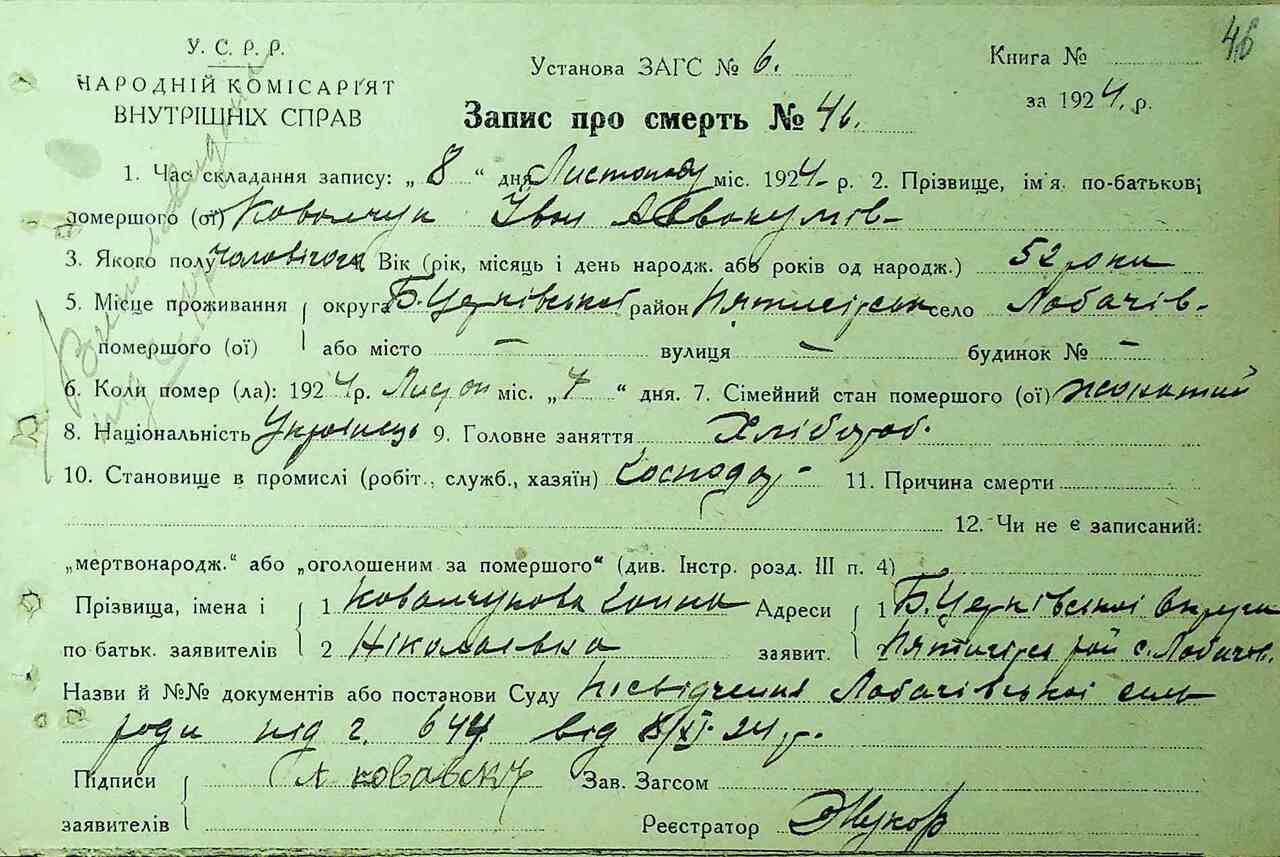 46
У. С. Р. Р.
НАРОДНІЙ КОМІСАРІЯТ
ВНУТРІШНІХ СПРАВ
Установа ЗАГС № 6.
Книга №
за 1924 р.
Запис про смерть № 46.
1. Час складання запису: „ 8 “ дня Листопаду міс. 1924 р. 2. Прізвище, ім'я, по-батькові
помершого (ої) Ковальчук Іван Аввакумів-
3. Якого полу чоловічого Вік (рік, місяць і день народж. або років од народж.) 52 роки
5. Місце проживання округа Б.Церківської район Пятигірськ село Лобачів-
помершого (ої) або місто — вулиця — будинок № —
6. Коли помер (ла): 1924 р. Листоп міс. „ 7 “ дня. 7. Сімейний стан помершого (ої) жонатий
8. Національність Українець 9. Головне заняття Хлібороб.
10. Становище в промислі (робіт., служб., хазяїн) Господар- 11. Причина смерти
12. Чи не є записаний:
„мертвонародж.“ або „оголошеним за помершого“ (див. Інстр. розд. III п. 4)
Прізвища, імена і 1 Ковальчукова Ганна Адреси 1 Б.Церківської округи
по батьк. заявителів 2 Ніколаєвна заявит. Пятигірс рай с. Лобачів.
Назви й №№ документів або постанови Суду Посвідчення Лобачівської сіль
ради під ч. 644 від 8/XI-24 р.
Підписи Зав. Загсом
заявителів Реєстратор